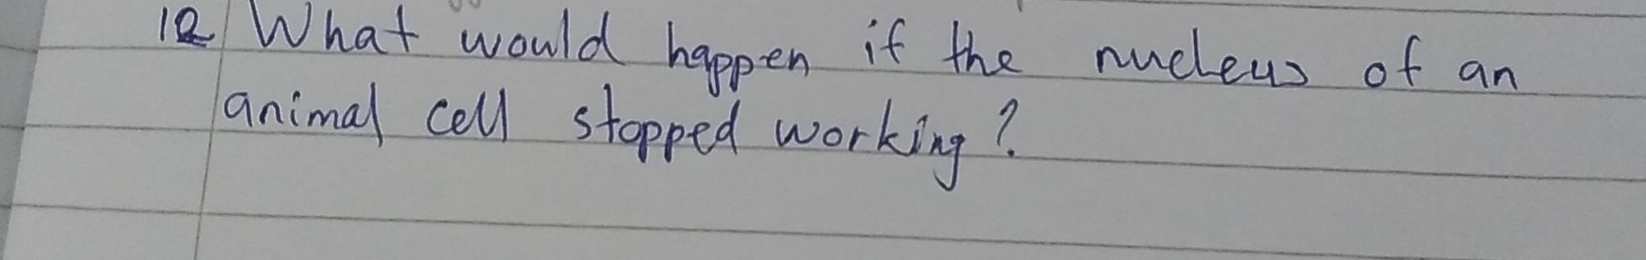 12 What would happen if the nucleus of an
animal cell stopped working?